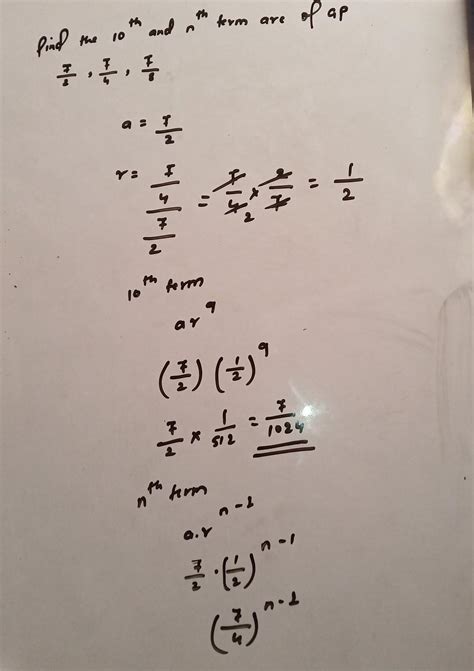 Find the 10^th and n^th term are of ap
7/2, 7/4, 7/8
a = 7/2
r = (7/4)/(7/2) = 7/4 2 × 2/7 = 1/2
10^th term
ar^9
(7/2) (1/2)^9
7/2 × 1/512 = 7/1024
n^th term
a.r^n-1
7/2 . (1/2)^n-1
(7/4)^n-1